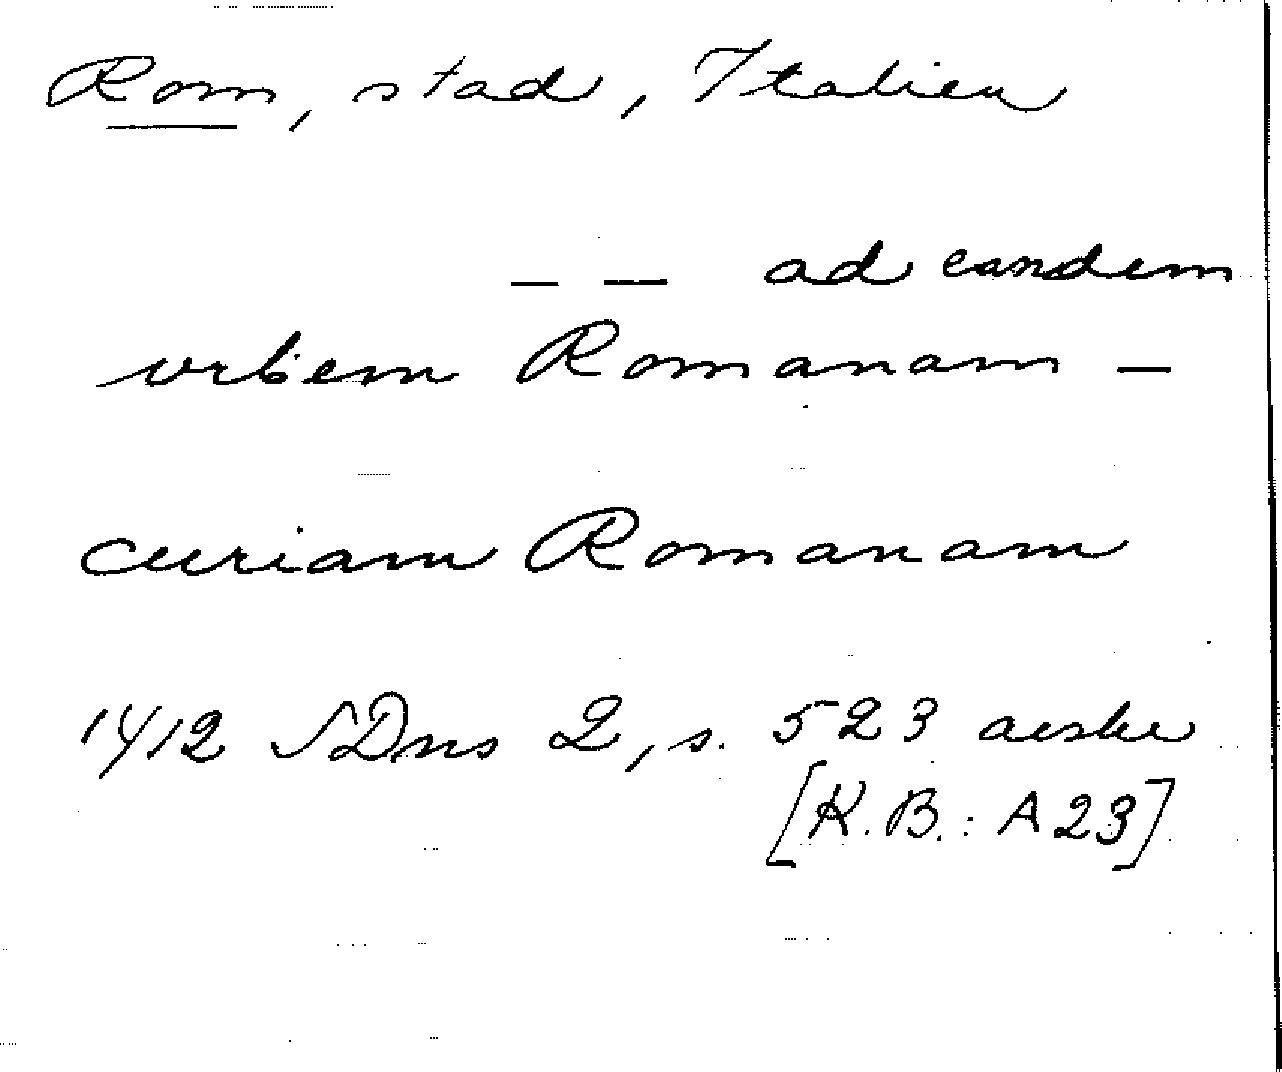 Rom, stad, Italien
— — ad eandem
vrbem Romanam —
curiam Romanam
1412 SDns 2, s. 523 avskr
[K.B.: A 23]